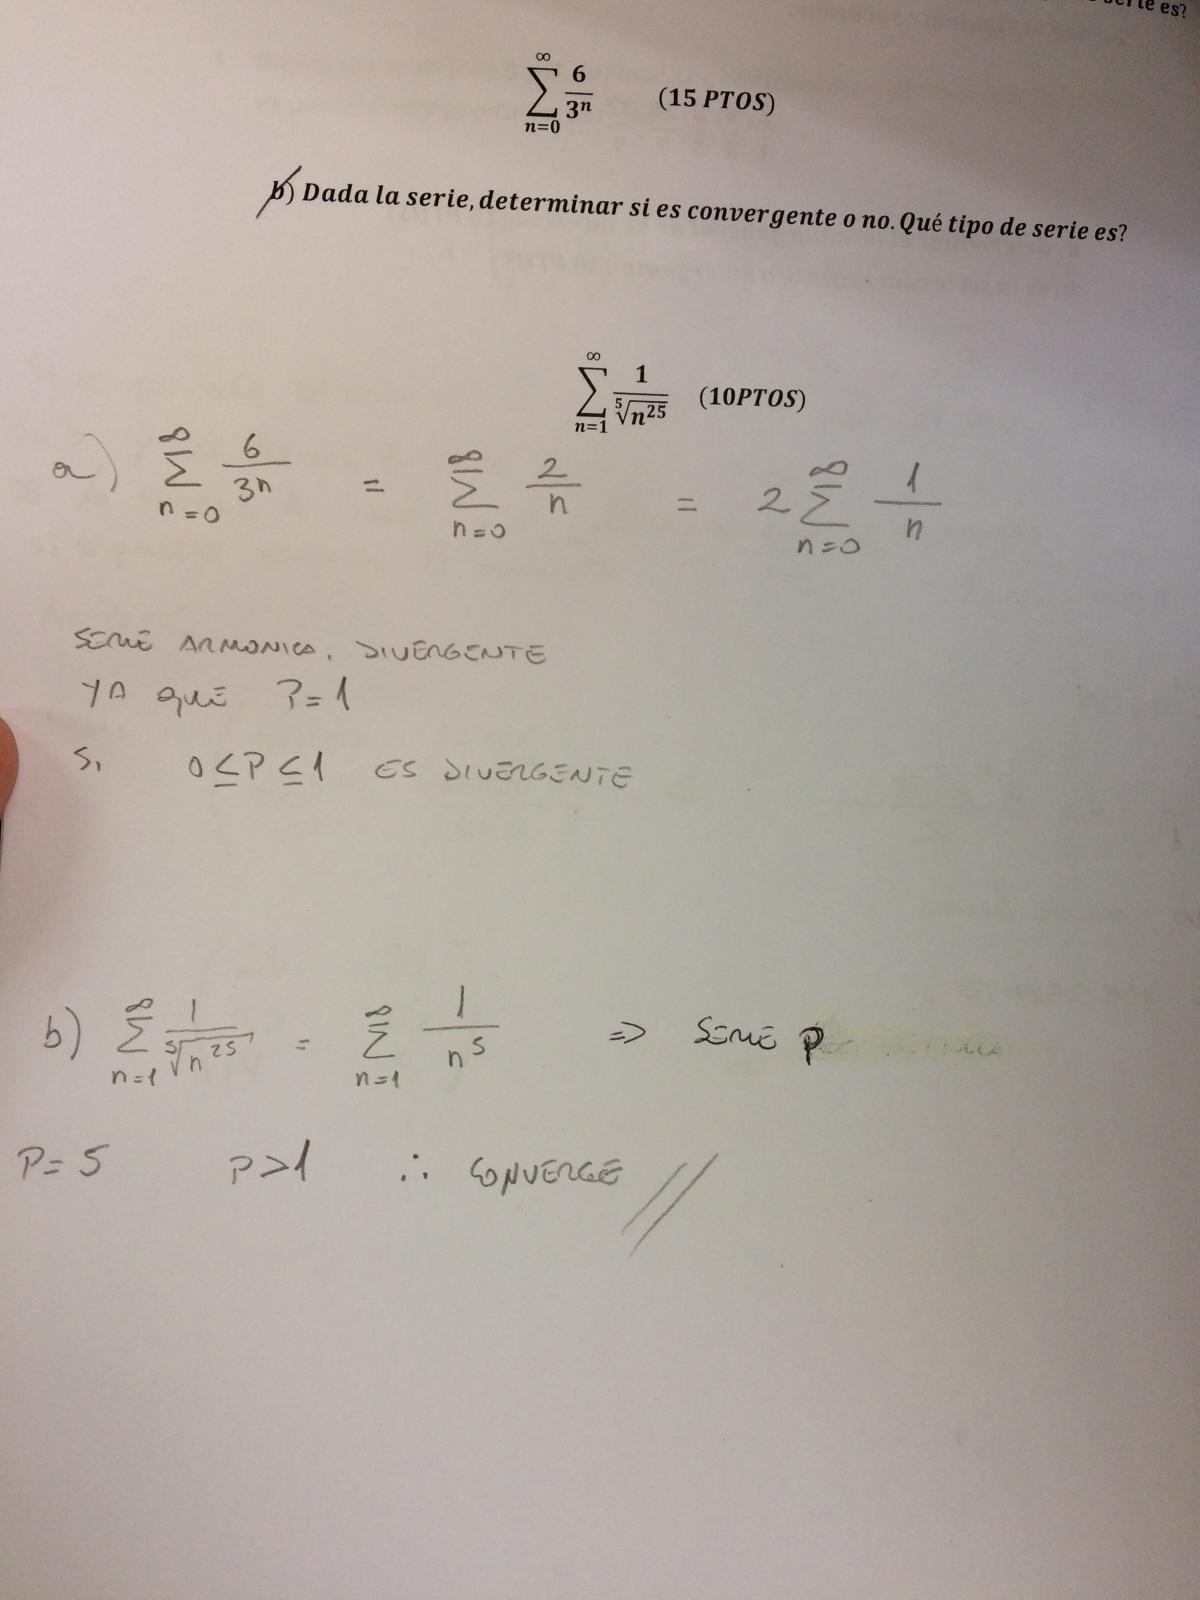 serie es?
∞
∑ 6/3ⁿ (15 PTOS)
n=0
b) Dada la serie, determinar si es convergente o no. Qué tipo de serie es?
∞
∑ 1/⁵√n²⁵ (10PTOS)
n=1
a) ∞ ∑ n=0 6/3n = ∞ ∑ n=0 2/n = 2 ∞ ∑ n=0 1/n
SERIE ARMONICA. DIVERGENTE
YA QUE P=1
Si 0≤P≤1 ES DIVERGENTE
b) ∞ ∑ n=1 1/⁵√n²⁵ = ∞ ∑ n=1 1/n⁵ ⇒ SERIE P
P=5 P>1 ∴ CONVERGE //